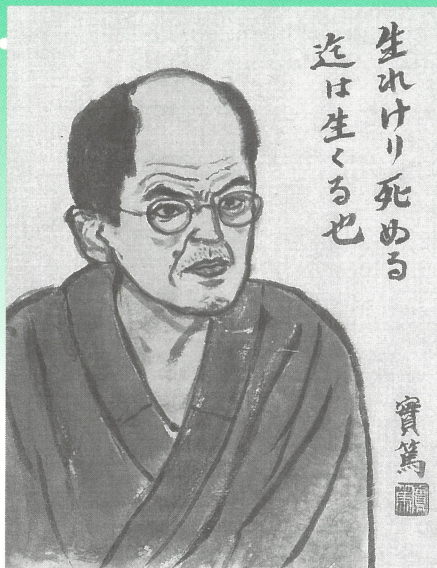 生れけり死ぬる
迄は生くる也
實篤